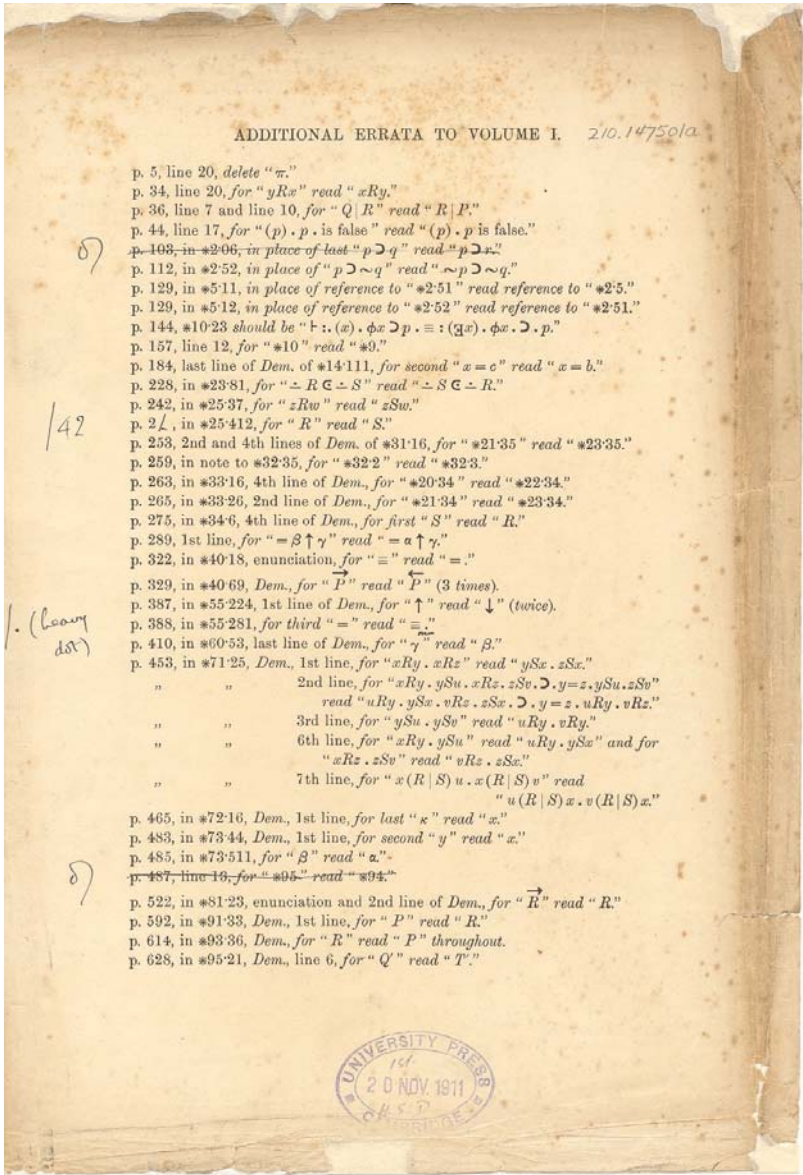 ADDITIONAL ERRATA TO VOLUME I. 210.14750/a
p. 5, line 20, delete “π.”
p. 34, line 20, for “yRx” read “xRy.”
p. 36, line 7 and line 10, for “Q | R” read “R | P.”
p. 44, line 17, for “(p) . p . is false” read “(p) . p is false.”
p. 103, in *2·06, in place of last “p ⊃ q” read “p ⊃ r.”
p. 112, in *2·52, in place of “p ⊃ ~q” read “~p ⊃ ~q.”
p. 129, in *5·11, in place of reference to “*2·51” read reference to “*2·5.”
p. 129, in *5·12, in place of reference to “*2·52” read reference to “*2·51.”
p. 144, *10·23 should be “⊢ :. (x) . ϕx ⊃ p . ≡ : (∃x) . ϕx . ⊃ . p.”
p. 157, line 12, for “*10” read “*9.”
p. 184, last line of Dem. of *14·111, for second “x = c” read “x = b.”
p. 228, in *23·81, for “∸ R ⋐ ∸ S” read “∸ S ⋐ ∸ R.”
p. 242, in *25·37, for “zRw” read “zSw.”
/42 p. 2 , in *25·412, for “R” read “S.”
p. 253, 2nd and 4th lines of Dem. of *31·16, for “*21·35” read “*23·35.”
p. 259, in note to *32·35, for “*32·2” read “*32·3.”
p. 263, in *33·16, 4th line of Dem., for “*20·34” read “*22·34.”
p. 265, in *33·26, 2nd line of Dem., for “*21·34” read “*23·34.”
p. 275, in *34·6, 4th line of Dem., for first “S” read “R.”
p. 289, 1st line, for “= β ↑ γ” read “= α ↑ γ.”
p. 322, in *40·18, enunciation, for “≡” read “= .”
p. 329, in *40·69, Dem., for “P⃗” read “P⃖” (3 times).
p. 387, in *55·224, 1st line of Dem., for “↑” read “↓” (twice).
/. (heavy dot) p. 388, in *55·281, for third “=” read “≡.”
p. 410, in *60·53, last line of Dem., for “γ” read “β.”
p. 453, in *71·25, Dem., 1st line, for “xRy . xRz” read “ySx . zSx.”
„ „ 2nd line, for “xRy . ySu . xRz . zSv . ⊃ . y = z . ySu . zSv”
read “uRy . ySx . vRz . zSx . ⊃ . y = z . uRy . vRz.”
„ „ 3rd line, for “ySu . ySv” read “uRy . vRy.”
„ „ 6th line, for “xRy . ySu” read “uRy . ySx” and for
“xRz . zSv” read “vRz . zSx.”
„ „ 7th line, for “x (R | S) u . x (R | S) v” read
“u (R | S) x . v (R | S) x.”
p. 465, in *72·16, Dem., 1st line, for last “κ” read “x.”
p. 483, in *73·44, Dem., 1st line, for second “y” read “x.”
p. 485, in *73·511, for “β” read “α.”
p. 487, line 13, for “*95” read “*94.”
p. 522, in *81·23, enunciation and 2nd line of Dem., for “R⃗” read “R.”
p. 592, in *91·33, Dem., 1st line, for “P” read “R.”
p. 614, in *93·36, Dem., for “R” read “P” throughout.
p. 628, in *95·21, Dem., line 6, for “Q′” read “T′.”
UNIVERSITY PRESS
1st
20 NOV. 1911
CAMBRIDGE